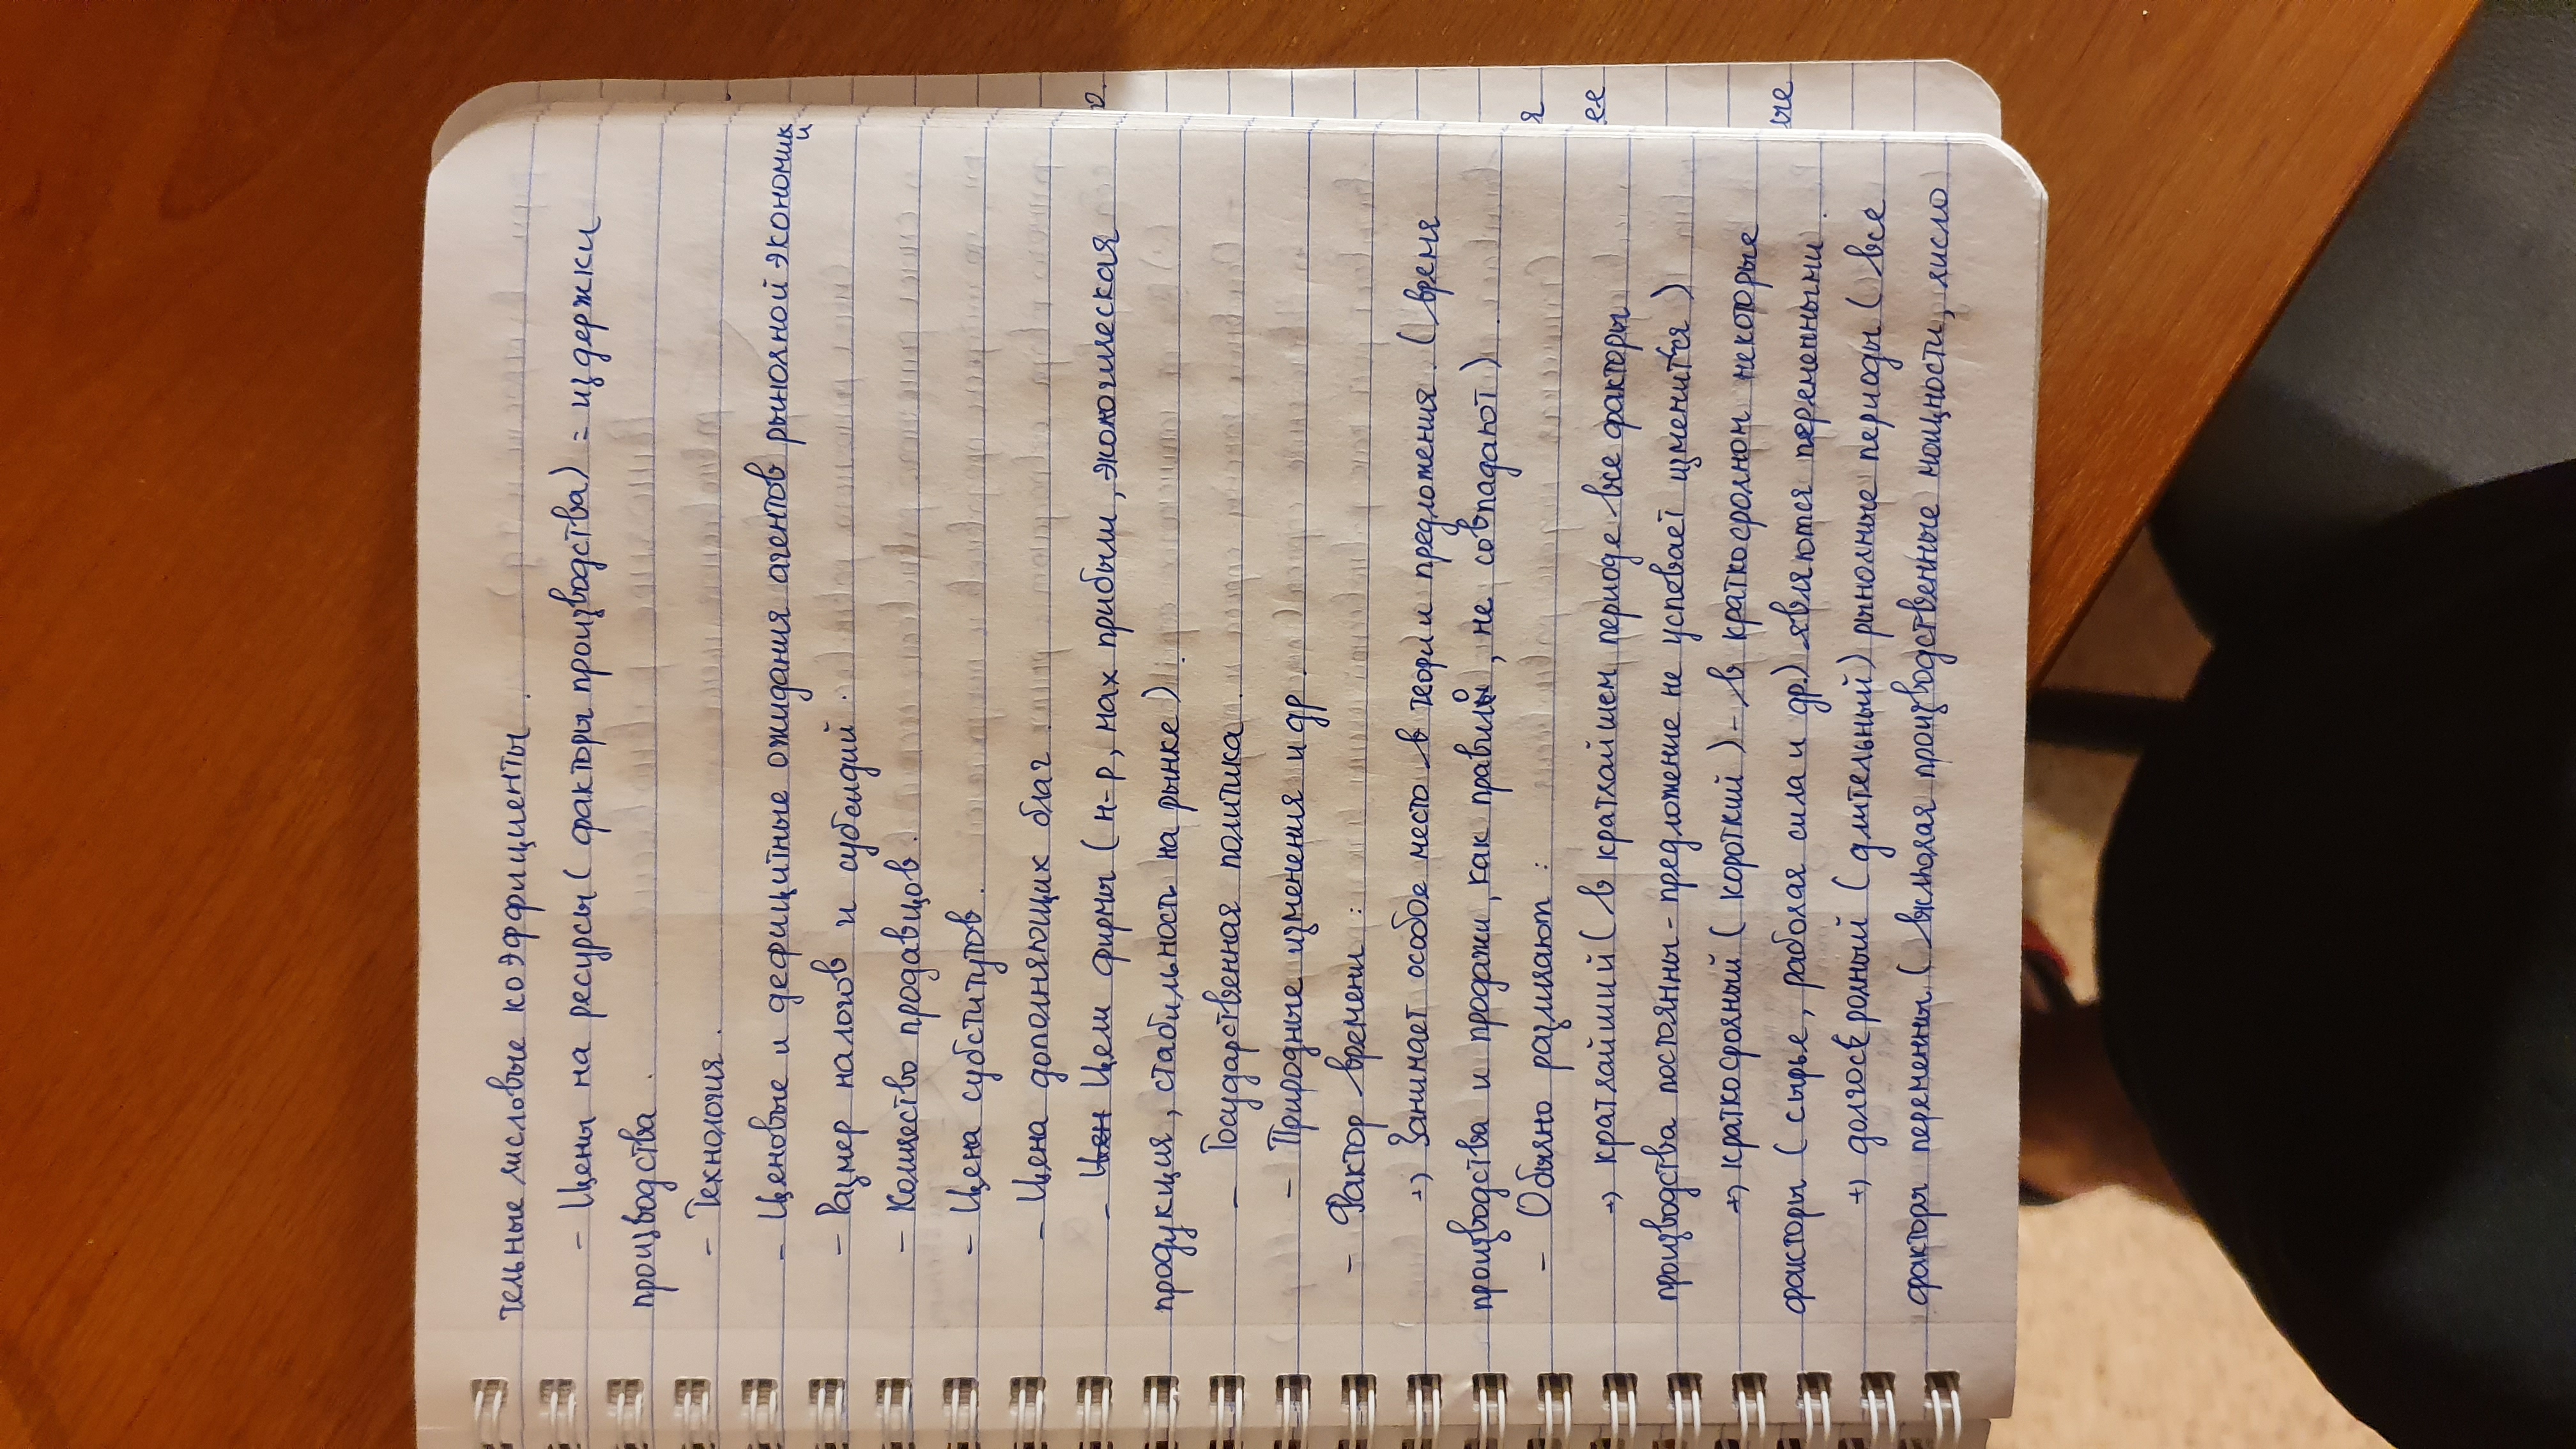 тельные числовые коэффициенты.
- Цены на ресурсы ( факторы производства) = издержки
производства.
- Технология.
- Ценовые и дефицитные ожидания агентов рыночной экономики
- Размер налогов и субсидий.
- Количество продавцов.
- Цена субститутов.
- Цена дополняющих благ.
- Цен Цели фирмы ( н-р, мах прибыли, экологическая
продукция, стабильность на рынке).
- Государственная политика.
- Природные изменения и др.
- Фактор времени :
+) Занимает особое место в теории предложения. ( время
производства и продажи, как правило, не совпадают).
- Обычно различают :
+) кратчайший ( в кратчайшем периоде все факторы
производства постоянны - предложение не успевает изменится )
+) краткосрочный ( короткий ) - в краткосрочном некоторые
факторы ( сырье, рабочая сила и др.) являются переменными.
+) долгосрочный ( длительный) рыночные периоды ( все
факторы переменны ( включая производственные мощности, число
о.
я
ее
ые